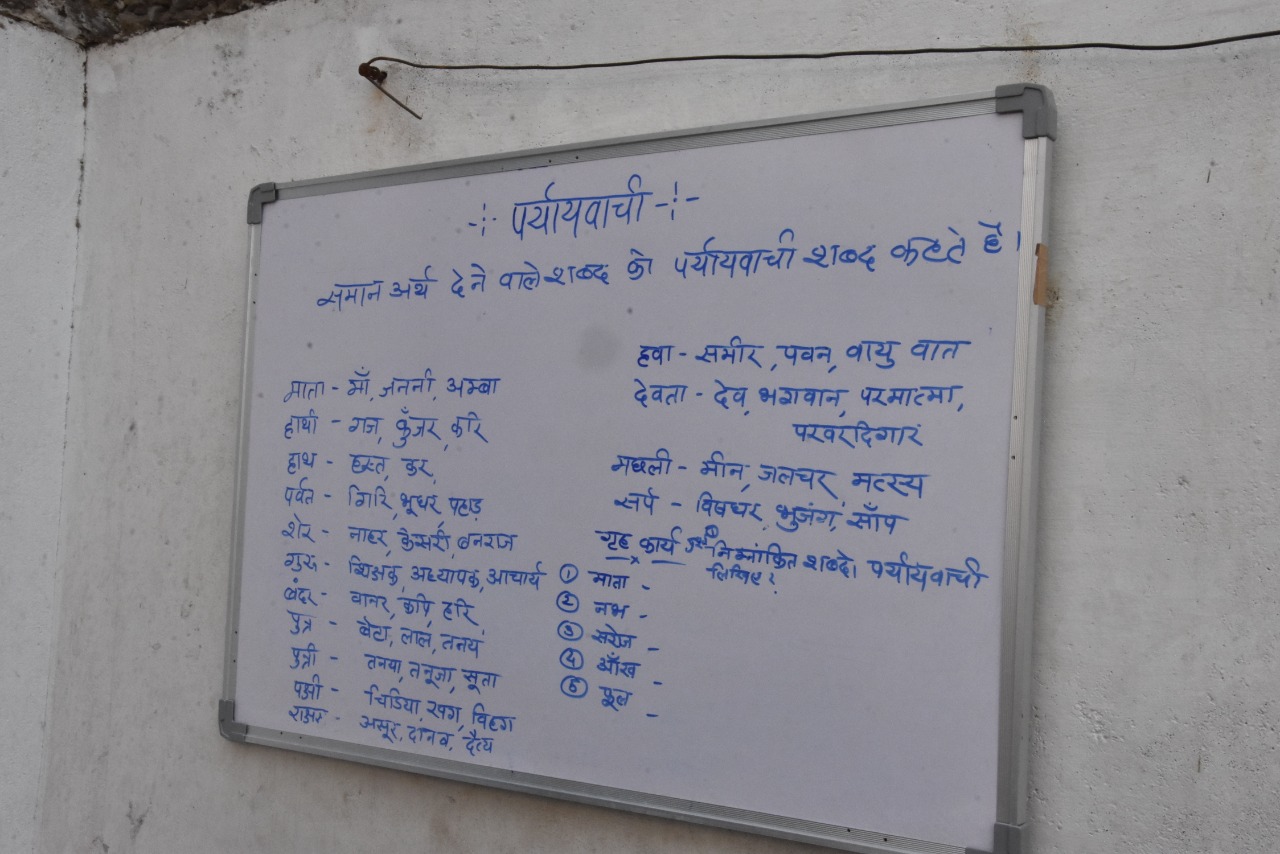 -:- पर्यायवाची -:-
समान अर्थ देने वाले शब्द को पर्यायवाची शब्द कहते है।
माता - माँ, जननी, अम्बा
हाथी - गज, कुँजर, करि
हाथ - हस्त, कर,
पर्वत - गिरि, भूधर, पहाड़
शेर - नाहर, केसरी, वनराज
गुरु - शिक्षक, अध्यापक, आचार्य
बंदर - वानर, कपि, हरि
पुत्र - बेटा, लाल, तनय
पुत्री - तनया, तनूजा, सूता
पक्षी - चिडिया, खग, विहग
राक्षस - असूर, दानव, दैत्य
हवा - समीर, पवन, वायु वात
देवता - देव, भगवान, परमात्मा,
परवरदिगार
मछली - मीन, जलचर, मत्स्य
सर्प - विषधर, भुजंग, साँप
गृह कार्य निम्नांकित शब्दो पर्यायवाची
लिखिए?
① माता -
② नभ -
③ सरोज -
④ आँख -
⑤ फूल -